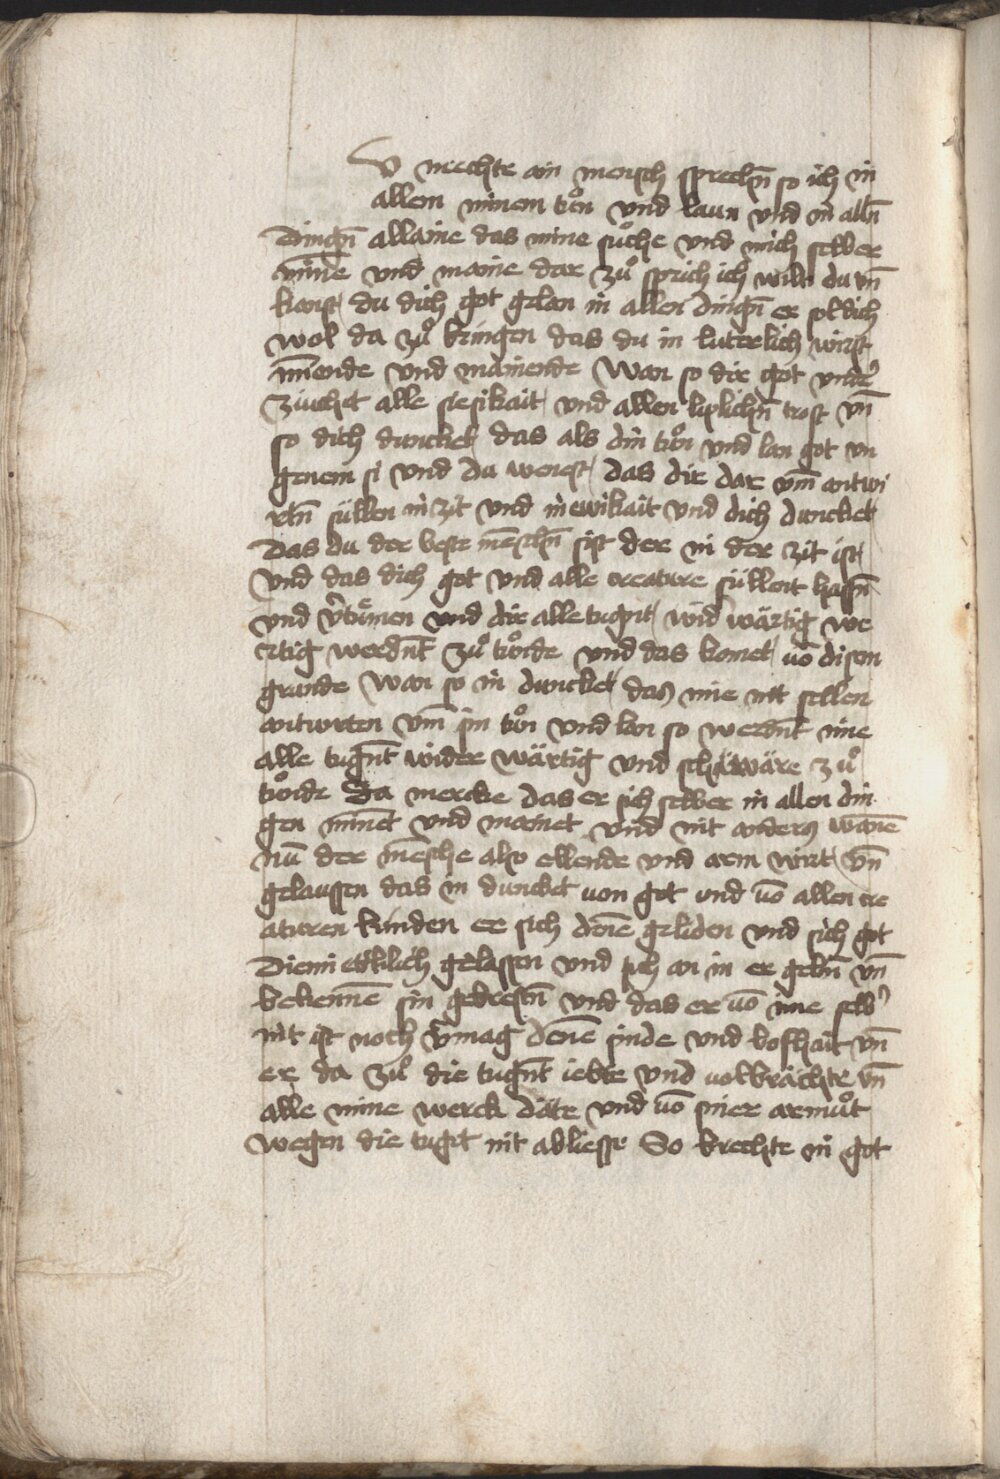 U mechte ain mensch sprechñ so ich in
allem minem tůn und laun und in allñ
Dingñ allaine das mine sůche und mich selber
mine und maine dar zů sprich ich wilt du uñ
kanst du dich got gelan in allen dingñ er sol dich
wol da zů bringen das du in luterlich wirst
minende und mainende Wan so dir got under
Zuchet alle siesikait und allen liplichñ trost uñ
so dich duncket das als din tůn und lan got un
genem si und du wenest das dir dar um̄ antwi
rtñ süllen in zit und in ewikait und dich duncket
Das du der beste menschñ sist der in der zit ist
und das dich got und alle creature süllent hassñ
und und dir alle tugnt wid wärtig we
rtig werdnt zů tůnde und das komet uō disen
grunde Wan so in duncket das nie nit sellen
antwrten um̄ sin tůn und lan so werdnt ime
alle tugnt wider wärtig und schwäre zů
tůnde Da mercke das er sich selber in allen din
gen minet und mainet und nit anders wanē
nū der mēsche also ellende und arm wirt uñ
gelaussen das in duncket uon got und uō allen cre
aturen kunden er sich denē geliden und sich got
Diemietklich gelassen und sich an in er gebñ uñ
bekennē sin gebrestñ und das er uō ime selb
nit ist noch vmag denē sinde und boshait uñ
er da zů die tugnt iebte und uolbrächte uñ
alle mine werck däte und uō siner armůt
wegen die tuget nit abliesse So brechte in got